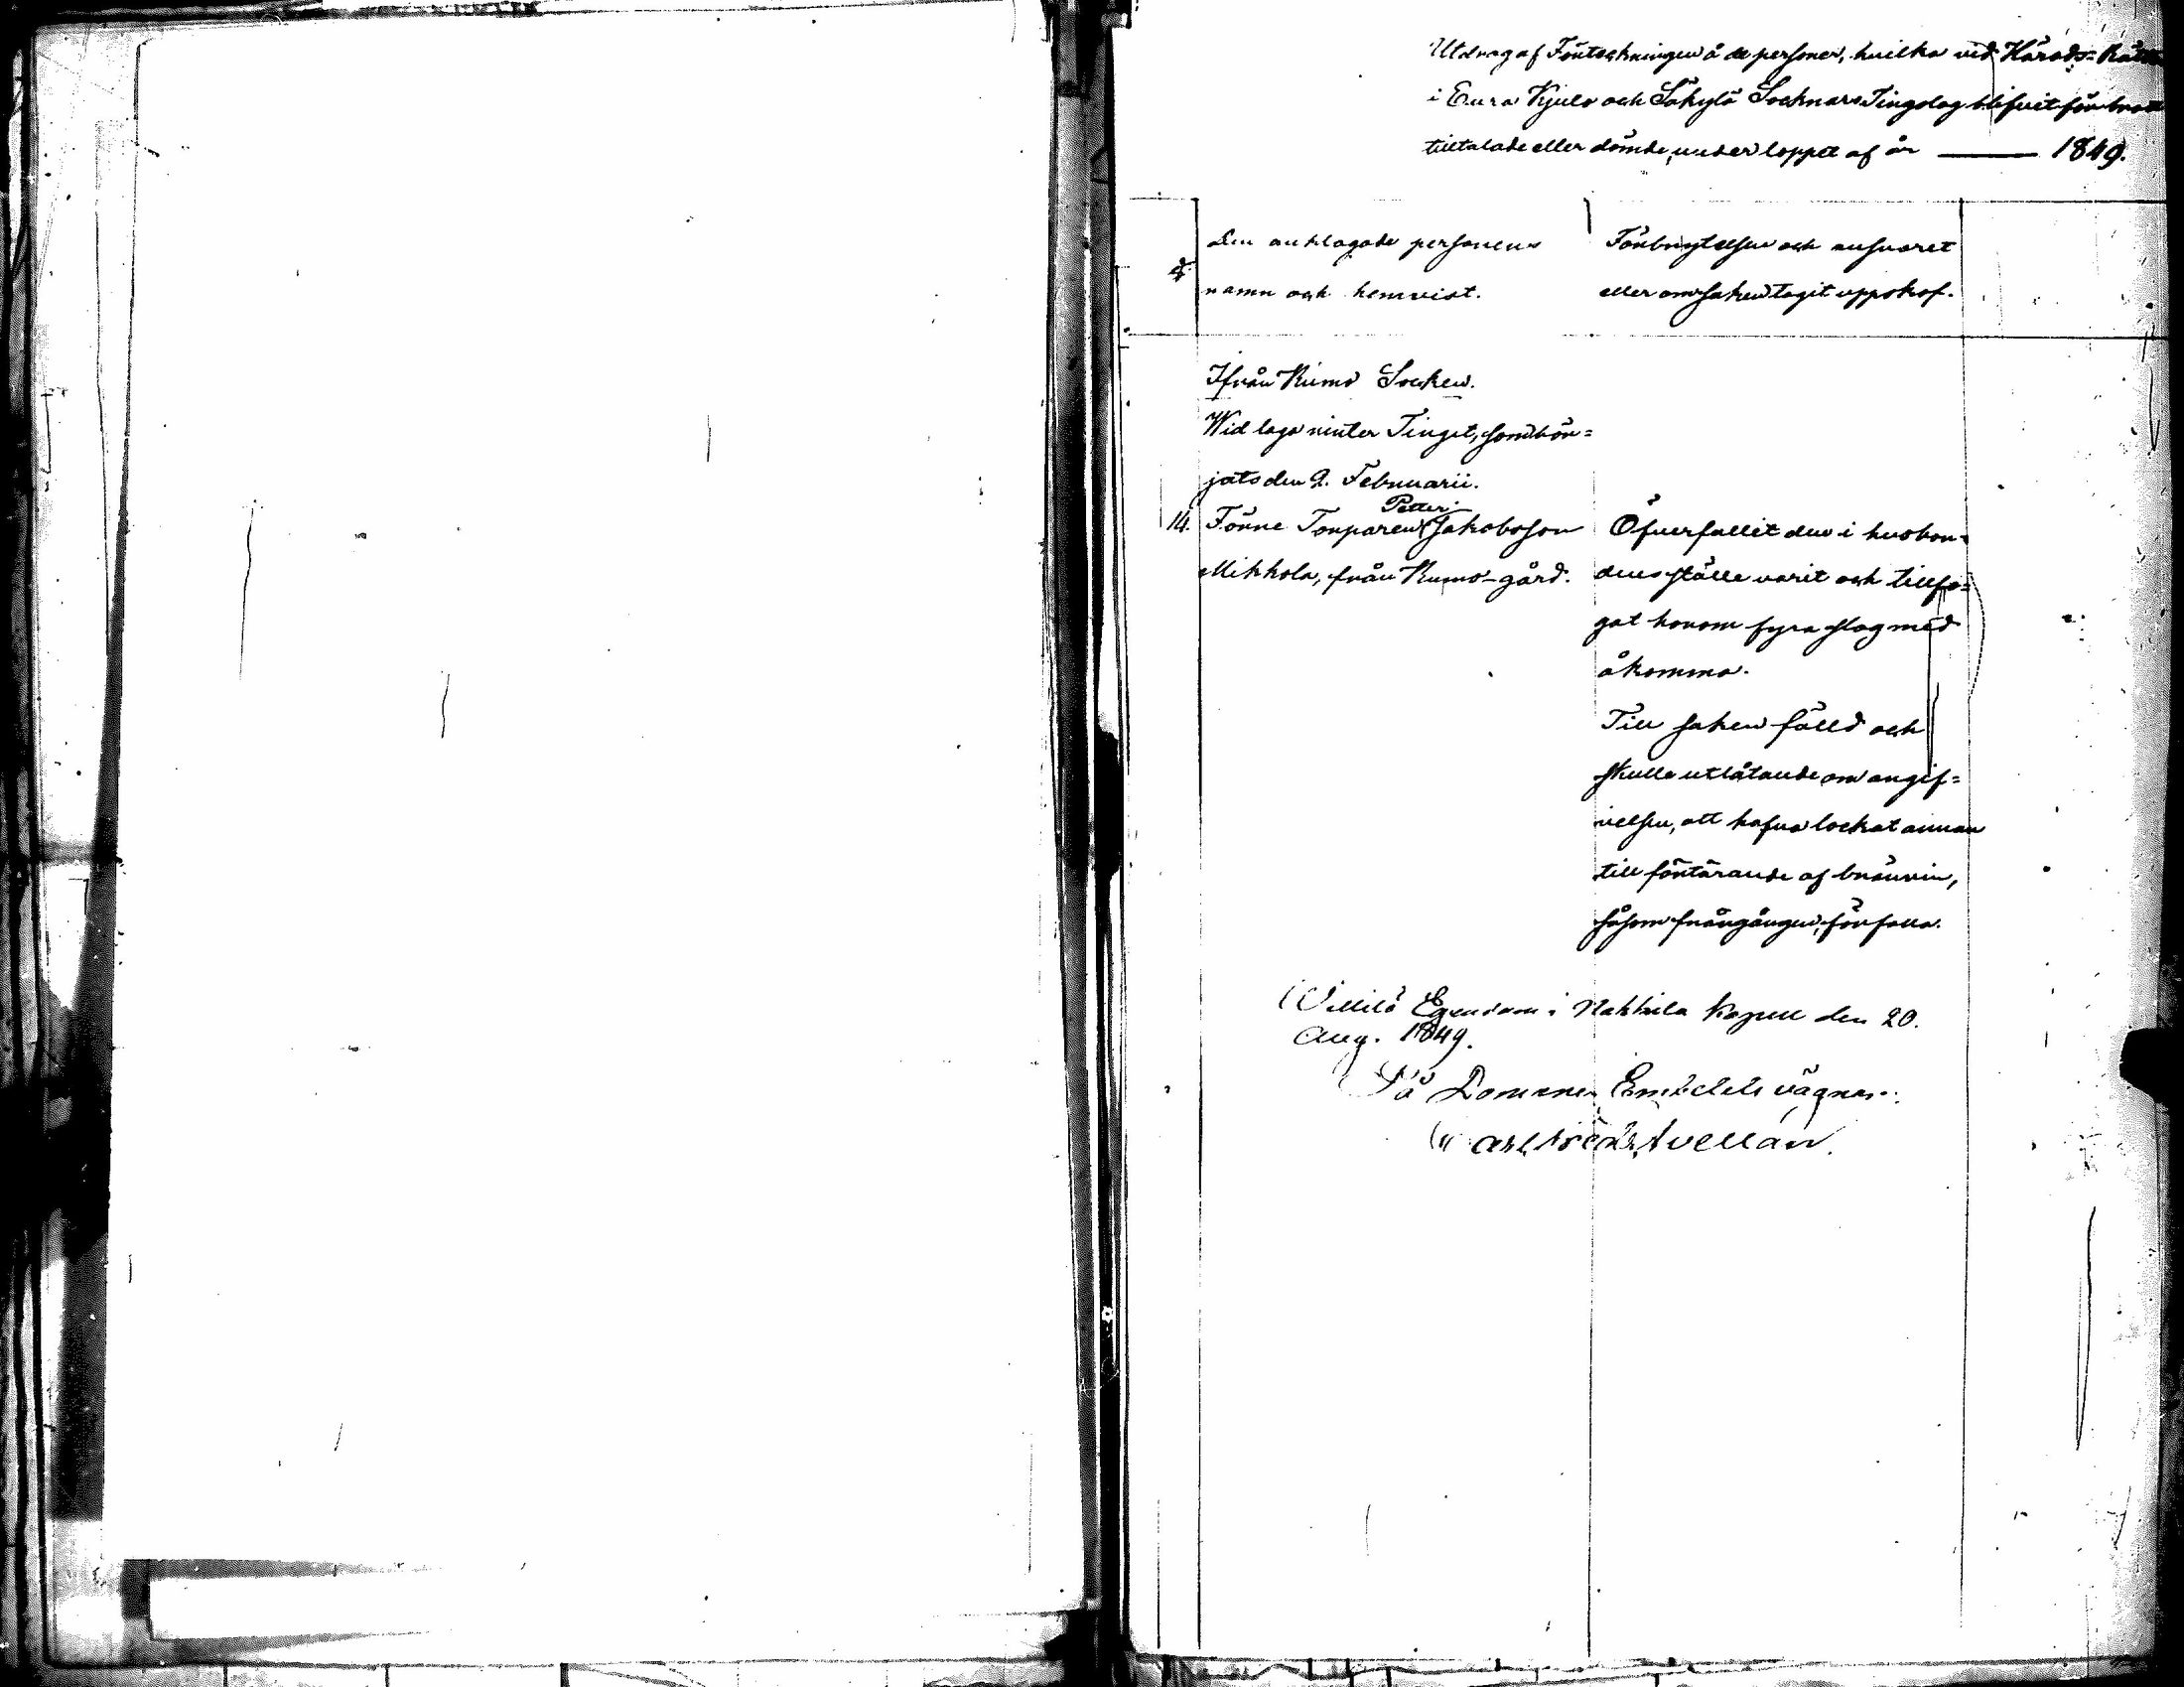 Utdrag af Förteckningen å de personer, hvilka vid Härads-Rätten
i Eura Kjulo och Säkylä Socknars Tingslag blifvit för brott
tilltalade eller dömde, under loppet af år — 1849.
Den anklagade personens
namn och hemvist.
Förbrytelsen och ansvaret
eller om saken tagit uppskof.
Ifrån Kumo Socken.
Wid laga vinter Tinget, som bör=
jats den 9. Februarii.
14. Förre Torparen Petter Jakobsson
Mikkola, från Kumo-gård.
Öfverfallit den i husbon=
dens ställe varit och tillfo=
gat honom fyra slag med
åkomma.
Till saken fälld och
skulle utlåtande om angif=
velsen, att hafva lockat annan
till förtärande af bränvin,
såsom frångången, förfalla.
Villilä Egendom i Nakkila Kapell den 20.
Aug. 1849.
På Domare Embetets vägnar: